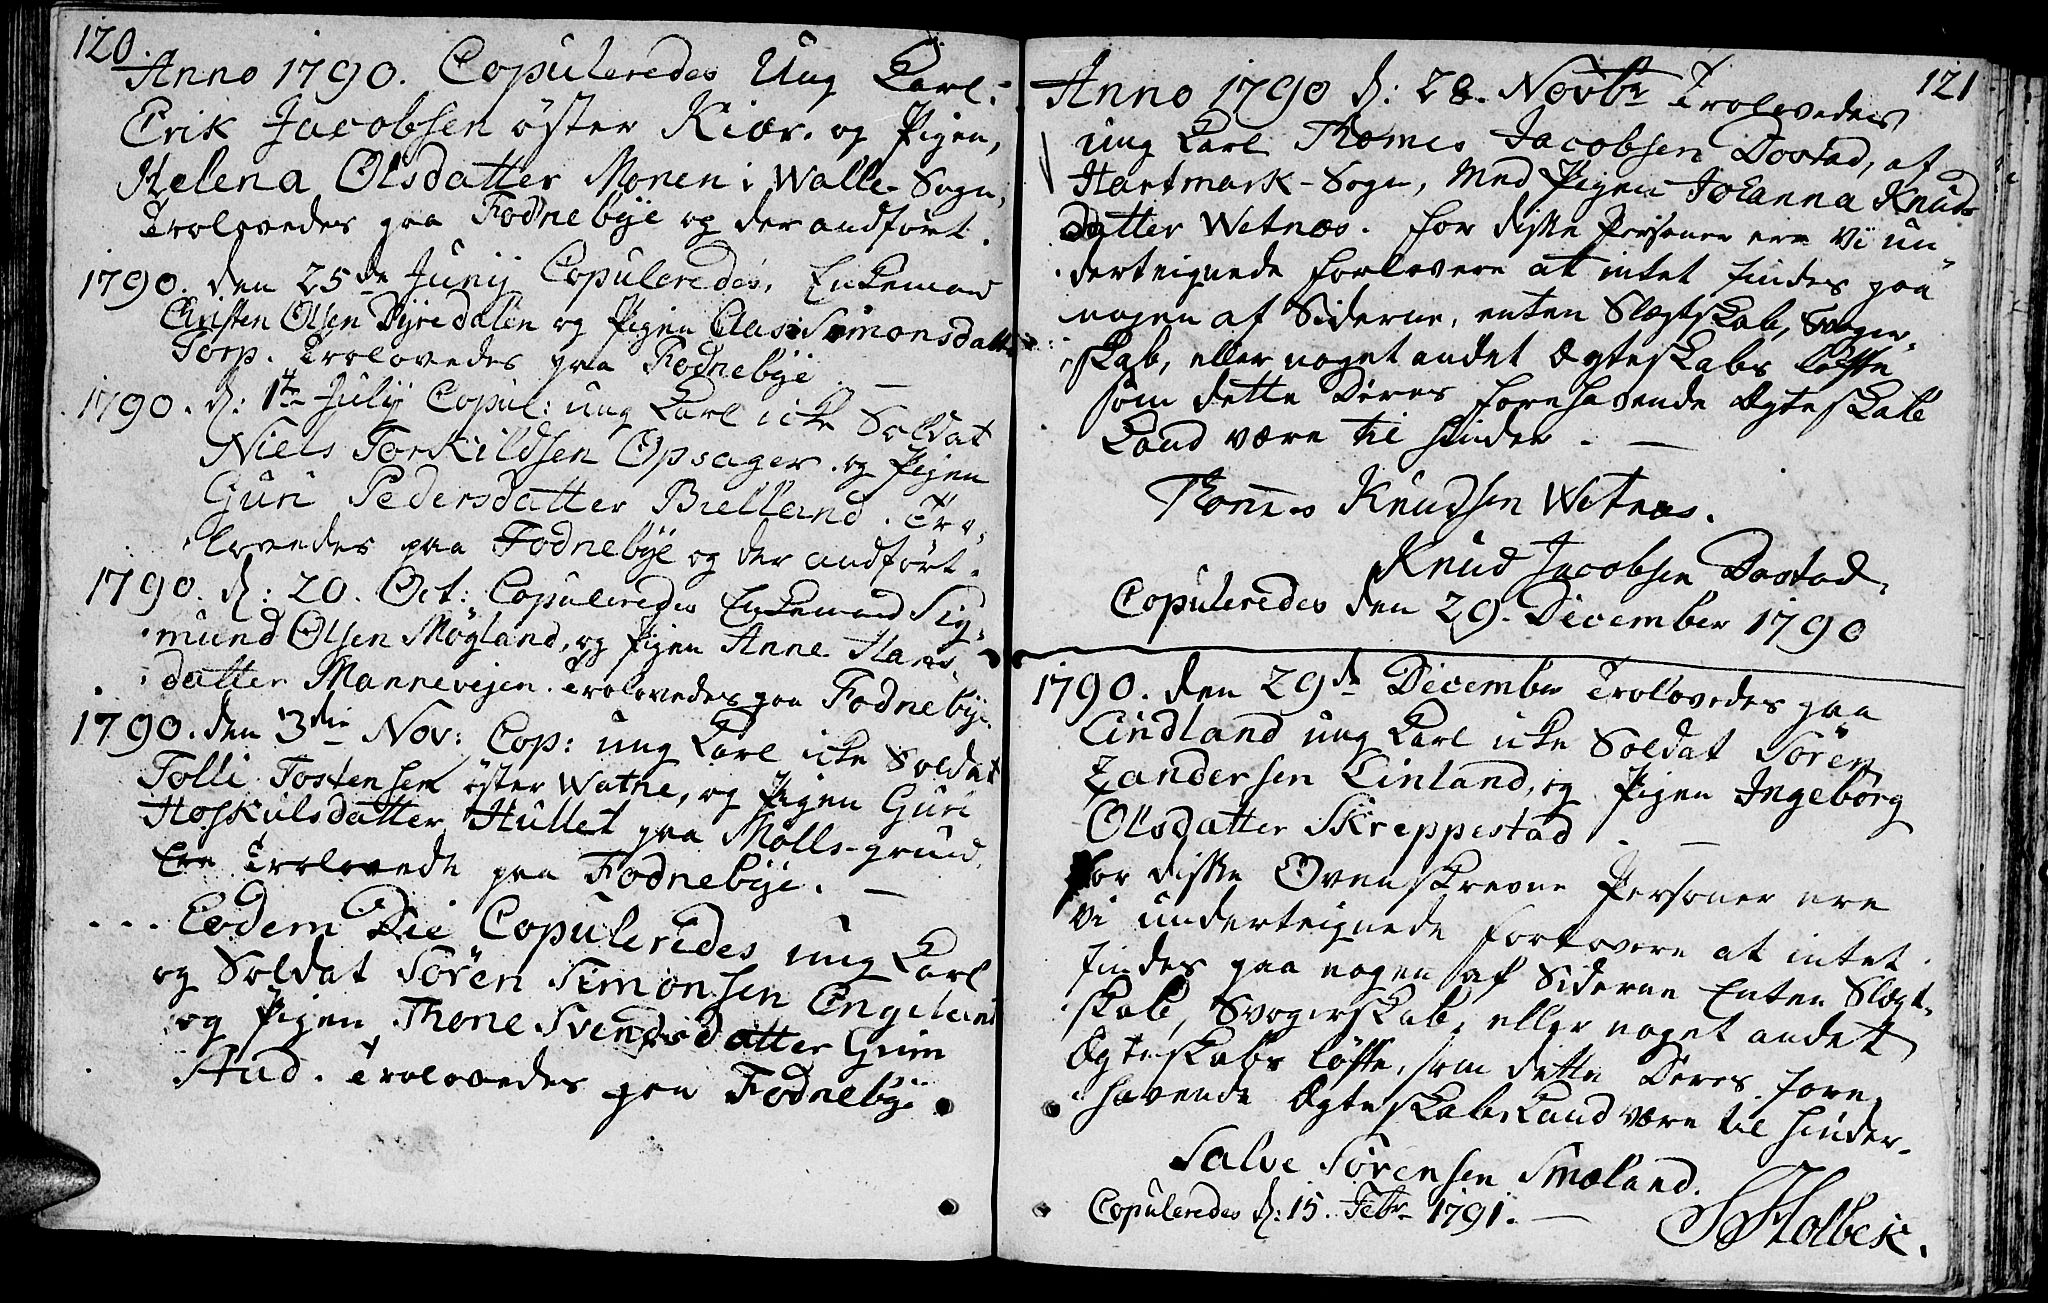 120.
Anno 1790. Copuleredes Ung Karl.
Erik Jacobsen öster Kiær. og Pigen,
Helena Olsdatter Monen i Walle-Sogn,
Trolovedes paa Fodnebye og der andført.
1790. den 25de Junij Copuleredes, Enkemand
Christen Olsen Dyredalen og Pigen Aase Simonsdatter
Torp. Trolovedes paa Fodnebye. —
1790. d: 1te Julij Copul: ung Karl icke Soldat
Niels Torkildsen Opsager. og Pigen
Guri Pedersdatter Bielland. Tro-
lovedes paa Fodnebye og der andført.
1790. d: 20. Oct: Copuleredes Enkemand Sig-
mund Olsen Møgland, og Pigen Anne Hans
datter Mannevejen. Trolovedes paa Fodnebye.
1790. den 3die Nov: Cop: ung Karl icke Soldat
Tolli Tostensen öster Watne, og Pigen Guri
Hoskulsdatter Hullet paa Molls-grund,
Ere Trolovede paa Fodnebye. —
Eodem Die Copuleredes ung Karl
og Soldat Sören Simonsen Engeland
og Pigen Thone Svendsdatter Grim
Stud. Trolovedes paa Fodnebye.
121
Anno 1790 d: 28. Novbr Trolovedes
ung Karl Thomes Jacobsen Dostad, af
Hartmark-Sogn, Med Pigen Johanna Knuds
datter Wetnæs. For diße Personer ere Vi un-
derteignede Forlovere at intet findes paa
nogen af Siderne, enten Slægtskab, Svoger-
skab, eller noget andet Ægteskabs Løfte
som dette Deres forehavende Ægteskab
Kand være til hinder. —
Thomes Knudsen Wetnæs.
Knud Jacobsen Dostad.
Copuleredes den 29. December 1790
1790. den 29de December Trolovedes paa
Lindland ung Karl icke Soldat Sören
Zandersen Linland, og Pigen Ingeborg
Olsdatter Skreppestad. —
For diße Ovenskrevne Personer ere
Vi underteignede Forlovere at intet
findes paa nogen af Siderne Enten Slægt-
skab, Svogerskab, eller noget andet
Ægteskabs løfte, som dette Deres fore,
havende Ægteskab Kand være til hinder.
Salve Sørensen Smæland.
Copuleredes d: 15. Febr 1791. —
Holbek.